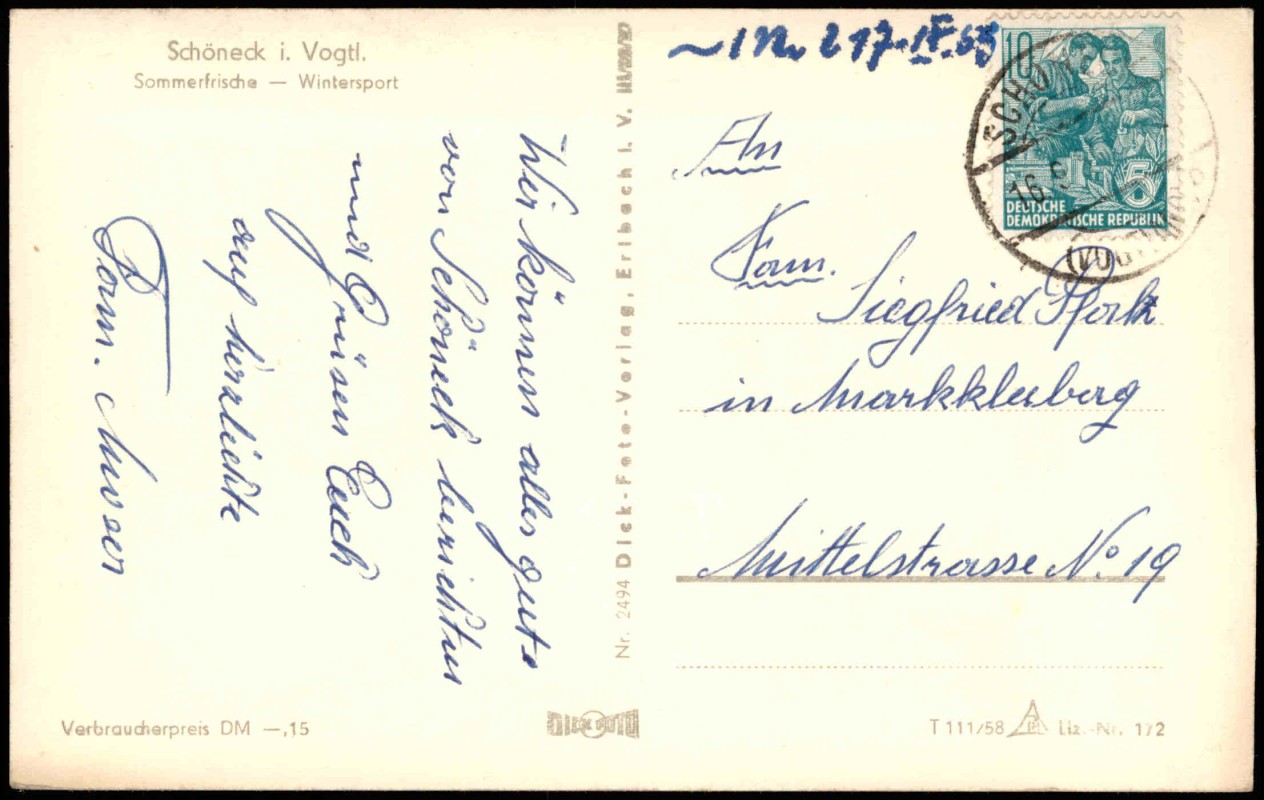 Schöneck i. Vogtl.
Sommerfrische — Wintersport
Wir können alles gute
von Schöneck berichten
und Grüsen Euch
auf herzlichte
Fam.
Nr. 2494 Dick-Foto-Verlag, Erlbach i. V.
217.IV.63
10
5
DEUTSCHE
DEMOKRATISCHE REPUBLIK
SCHÖNECK
16.9
(VOGTLAND)
An
Fam.
Siegfried
in Markkleeberg
Mittelstrasse No 19
Verbraucherpreis DM —,15
DICK FOTO
T 111/58 Liz.-Nr. 172